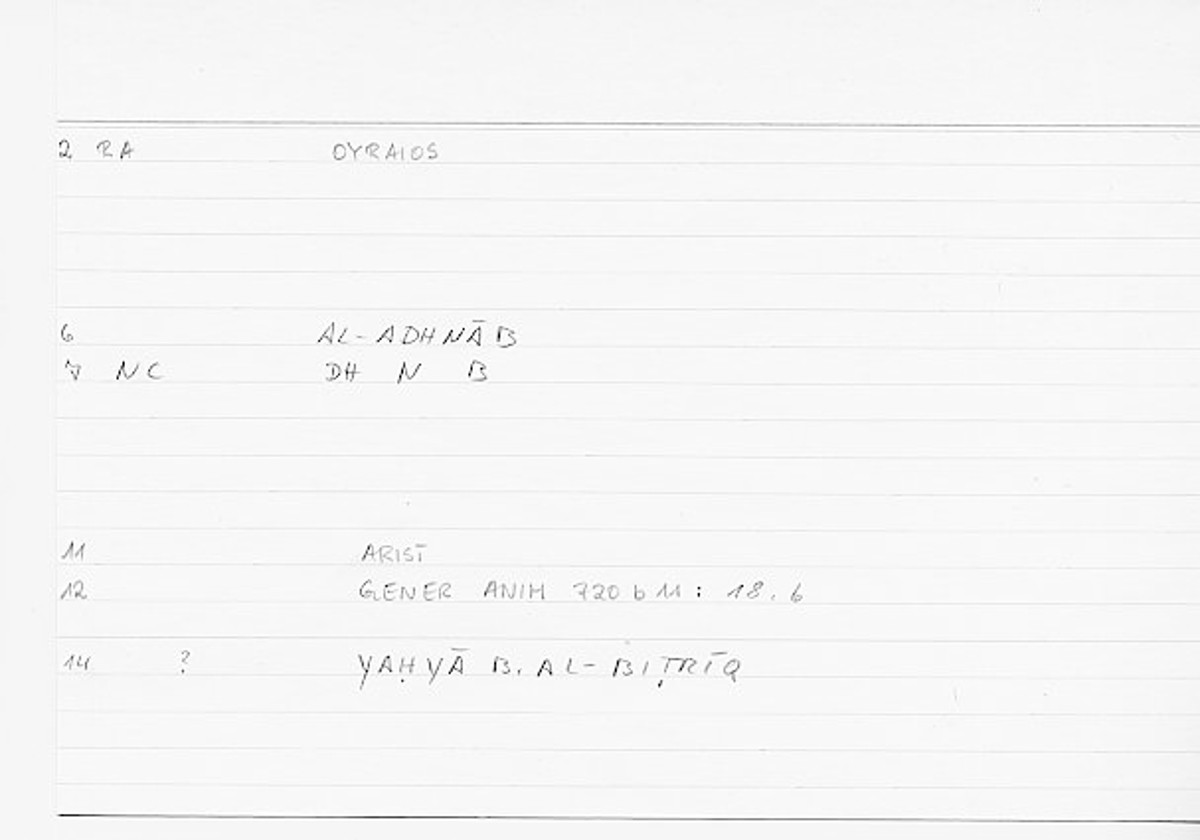 2 RA OYRAIOS
6 AL-ADHNĀB
7 NC DH N B
11 ARIST
12 GENER ANIM 720 b 11 : 18.6
14 ? YAḤYĀ B. AL-BIṬRĪQ